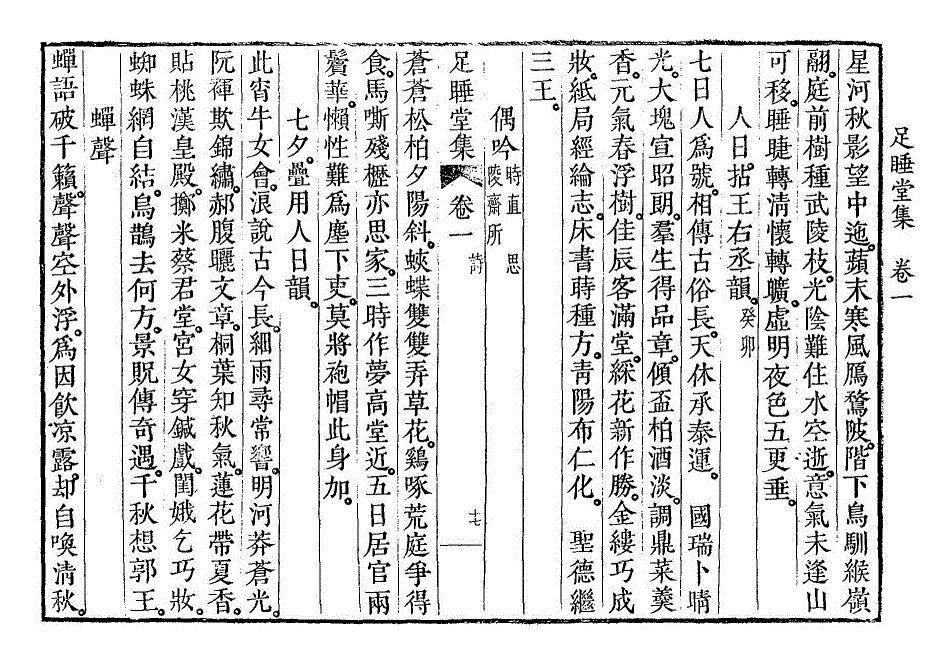 足睡堂集　卷一
星河秋影望中迤。蘋末寒風鴈鶩陂。階下鳥馴緱嶺
翮。庭前樹種武陵枝。光陰難住水空逝。意氣未逢山
可移。睡睫轉清懷轉曠。虛明夜色五更垂。
人日。拈王右丞韻。癸卯
七日人爲號。相傳古俗長。天休承泰運。　國瑞卜晴
光。大塊宣昭朗。羣生得品章。傾盃柏酒淡。調鼎菜羹
香。元氣春浮樹。佳辰客滿堂。綵花新作勝。金縷巧成
妝。紙局經綸志。床書蒔種方。靑陽布仁化。　聖德繼
三王。
偶吟時直思陵齋所
足睡堂集　卷一　詩　十七
蒼蒼松柏夕陽斜。蛺蝶雙雙弄草花。鷄啄荒庭爭得
食。馬嘶殘櫪亦思家。三時作夢高堂近。五日居官兩
鬢華。懶性難爲塵下吏。莫將袍帽此身加。
七夕。疊用人日韻。
此宵牛女會。浪說古今長。細雨尋常響。明河莽蒼光。
阮褌欺錦繡。郝腹曬文章。桐葉知秋氣。蓮花帶夏香。
貼桃漢皇殿。擲米蔡君堂。宮女穿鍼戲。閨娥乞巧妝。
蜘蛛網自結。烏鵲去何方。景貺傳奇遇。千秋想郭王。
蟬聲
蟬語破千籟。聲聲空外浮。爲因飮凉露。却自喚淸秋。